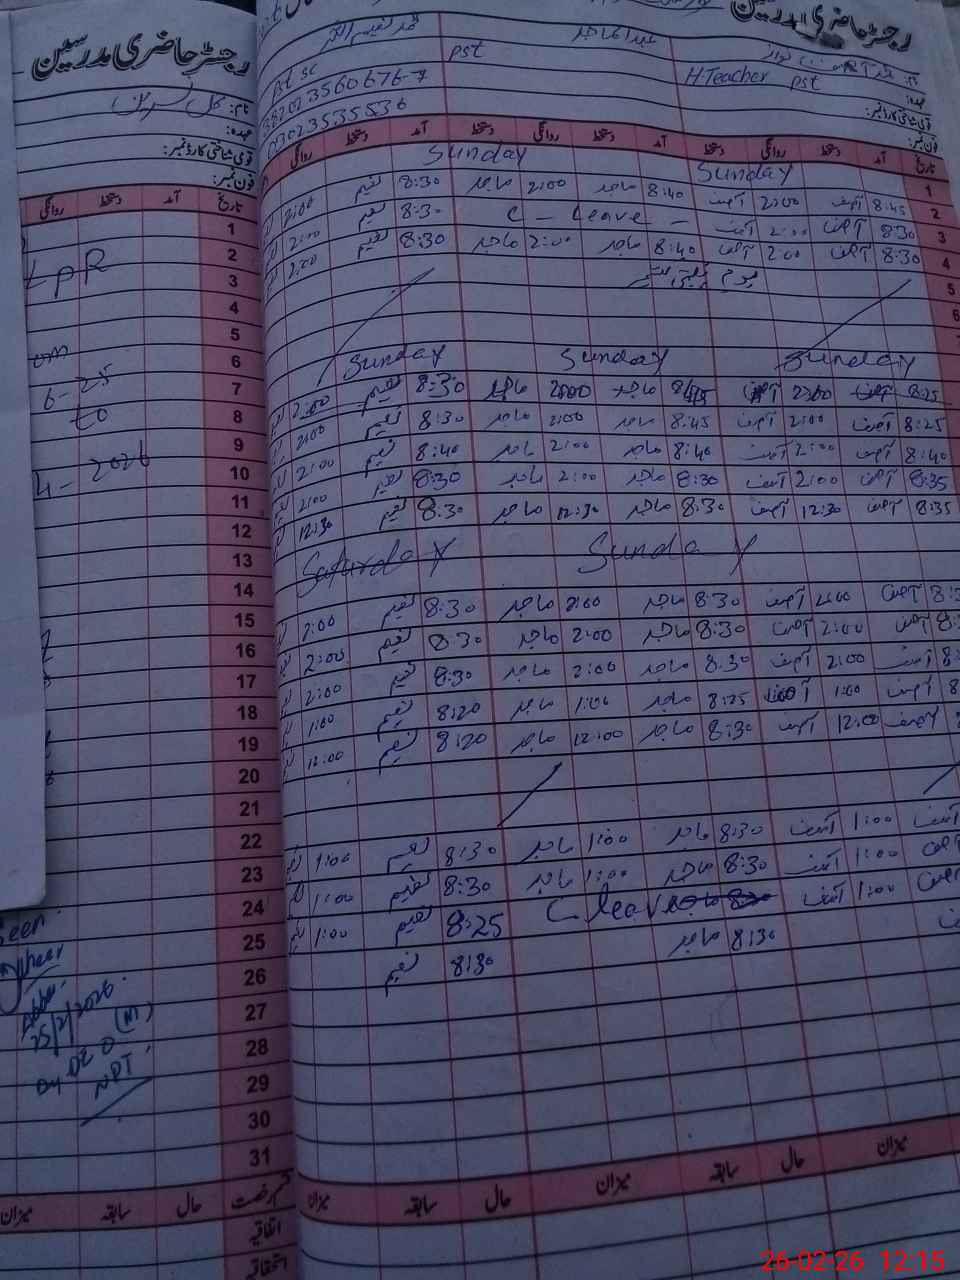 رجسٹر حاضری مدرسین
نام:
عہدہ:
قومی شناختی کارڈ نمبر:
فون نمبر:
تاریخ آمد دستخط روانگی
1
2
3
4
5
6
7
8
9
10
11
12
13
14
15
16
17
18
19
20
21
22
23
24
25
26
27
28
29
30
31
LPR
6-25
to
2026
Seen
25/2/2026
Dy DEO (M)
NPT
قسم رخصت حال سابقہ میزان
اتفاقیہ
استحقاقیہ
رجسٹر حاضری مدرسین
نام:
عہدہ: H Teacher pst pst pst sc
قومی شناختی کارڈ نمبر:
فون نمبر: 03023535536
تاریخ آمد دستخط روانگی دستخط آمد دستخط روانگی دستخط آمد دستخط روانگی
1 Sunday Sunday
2 8:45 آصف 2:00 آصف 8:40 ماجد 2:00 ماجد 8:30 نعیم 2:00
3 8:30 آصف 2:00 آصف C - Leave - 8:30 نعیم 2:00
4 8:30 آصف 2:00 آصف 8:40 ماجد 2:00 ماجد 8:30 نعیم 2:00
5 یوم یکجہتی کشمیر
6
7
Sunday Sunday Sunday
8:25 آصف 2:00 آصف 8:45 ماجد 2:00 ماجد 8:30 نعیم 2:00
8:25 آصف 2:00 آصف 8:45 ماجد 2:00 ماجد 8:30 نعیم 2:00
8:40 آصف 2:00 آصف 8:40 ماجد 2:00 ماجد 8:40 نعیم 2:00
8:35 آصف 2:00 آصف 8:30 ماجد 2:00 ماجد 8:30 نعیم 2:00
8:35 آصف 12:30 آصف 8:30 ماجد 12:30 ماجد 8:30 نعیم 12:30
Saturday Sunday
آصف 2:00 آصف 8:30 ماجد 2:00 ماجد 8:30 نعیم 2:00
آصف 2:00 آصف 8:30 ماجد 2:00 ماجد 8:30 نعیم 2:00
آصف 2:00 آصف 8:30 ماجد 2:00 ماجد 8:30 نعیم 2:00
آصف 1:00 آصف 8:25 ماجد 1:00 ماجد 8:20 نعیم 1:00
آصف 12:00 آصف 8:30 ماجد 12:00 ماجد 8:20 نعیم 12:00
آصف 1:00 آصف 8:30 ماجد 1:00 ماجد 8:30 نعیم 1:00
آصف 1:00 آصف 8:30 ماجد 1:00 ماجد 8:30 نعیم 1:00
آصف 1:00 آصف C leave 8:25 نعیم 1:00
8:30 ماجد 8:30 نعیم
میزان حال سابقہ میزان حال سابقہ میزان
26-02-26 12:15